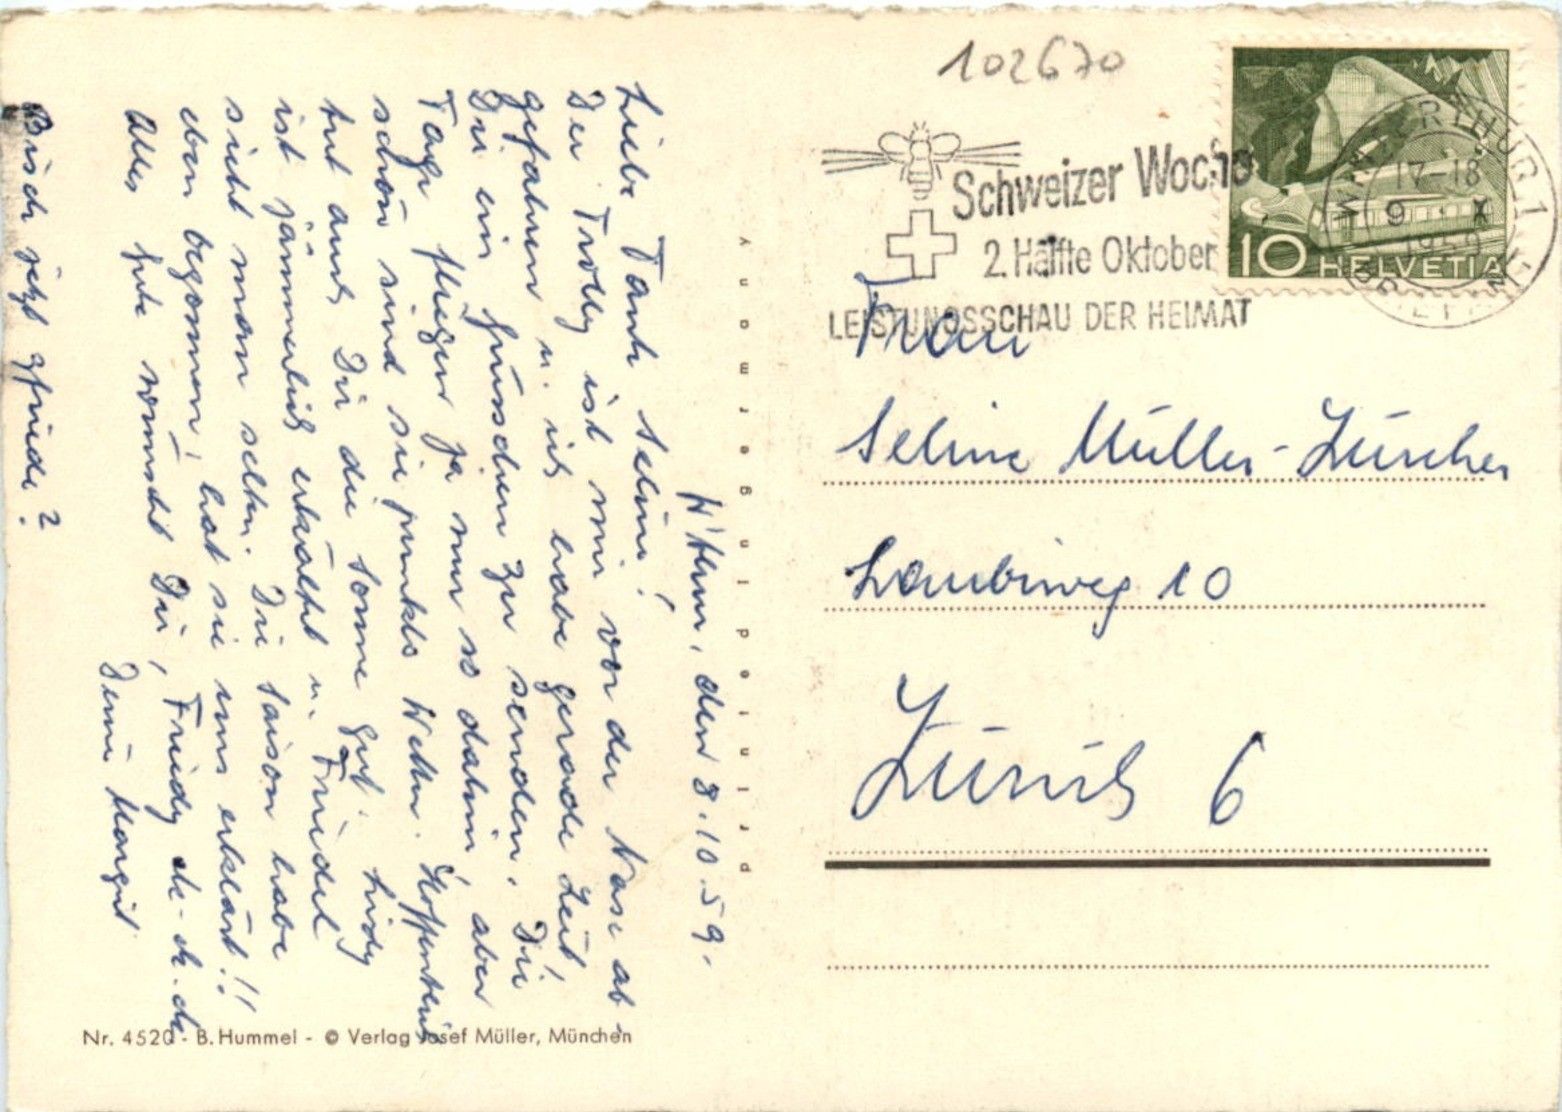 102670
Schweizer Woche
2. Hälfte Oktober
LEISTUNGSSCHAU DER HEIMAT
WINTERTHUR 1
17-18
9. X
1959
10 HELVETIA
Frau
Seline Müller-Zürcher
Laubiweg 10
Zürich 6
W'thur, den 8.10.59.
Liebe Tante Seline!
Der Trolly ist mir vor der Nase ab-
gefahren u. ich habe gerade Zeit,
Dir ein Grüsschen zu senden. Die
Tage fliegen ja nur so dahin, aber
schön sind sie punkto Wetter. Hoffentlich
tut auch Dir die Sonne gut. Lindy
ist jämmerlich erkältet u. Friedel
sieht man selten. Die Saison habe
eben begonnen, hat sie uns erklärt!!
Alles Gute wünscht Dir, Friedy etc. etc. etc.
Deine Margrit
Bisch jetzt zfriede?
Nr. 4520 - B. Hummel - © Verlag Josef Müller, München
printed in germany